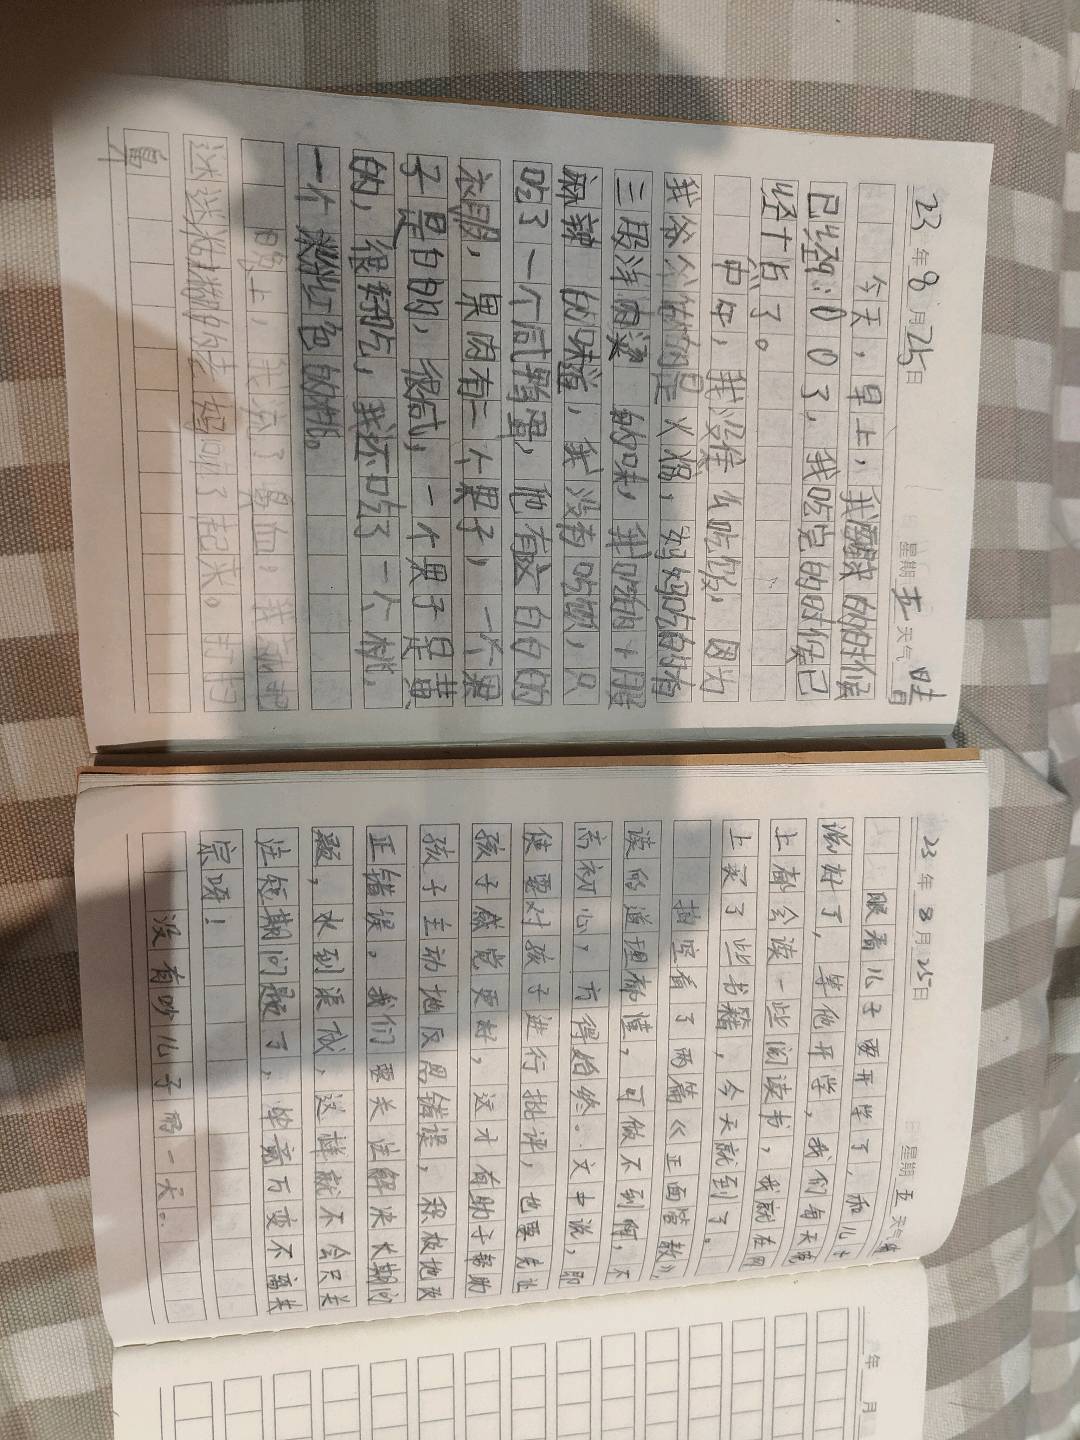 23年8月25日 星期五 天气 晴
今天，早上，我醒来的时候
已经9:00了，我吃完的时候已
经十点了。
中午，我没怎么吃饭，因为
我爷爷做的是火锅，妈妈吃的有
三股洋肉烫的味，我吃的十股
麻辣的味道，我没有吃饭，只
吃了一个咸鸭蛋，他有皮白白的
果肉有二个果子，一个果
子是白的，很咸，一个果子是黄
的，很好吃，我还吃了一个桃，
一个淡粉红色的桃。
晚上，我流了鼻血，我
妈妈叫了起来。
鼻
23年8月25日 星期五 天气 晴
眼看儿子要开学了，和儿子
说好了，等他开学，我们每天晚
上都会读一些阅读书，我就在网
上买了些书籍，今天就到了。
抽空看了两篇《正面管教》，
读的道理都懂，可做不到啊，不
忘初心，方得始终。文中说，即
使要对孩子进行批评，也要先让
孩子感觉更好，这才有助于帮助
孩子主动地反思错误，积极地改
正错误。我们要关注解决长期问
题，水到渠成，这样就不会只关
注短期问题了，毕竟万变不离其
宗呀！
没有吵儿子的一天。
年 月